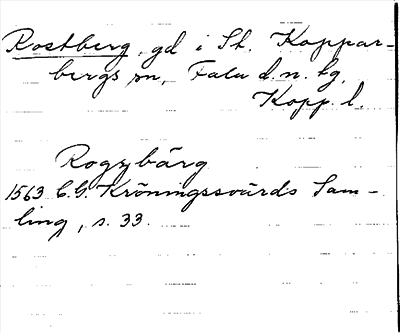 Rostberg, gd i St. Koppar-
bergs sn, Falu d.n. tg,
Kopp. l.
Rogzbärg
1563 C.G. Kröningssvärds Sam-
ling, s. 33.